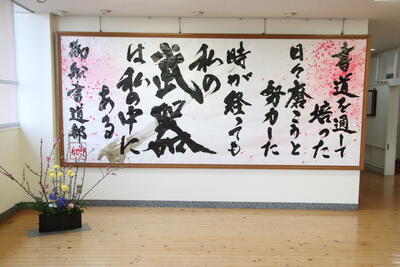 書道を通して
培った
日々磨こうと
努力した
時が経っても
私の
武器
は私の中に
ある
書道部